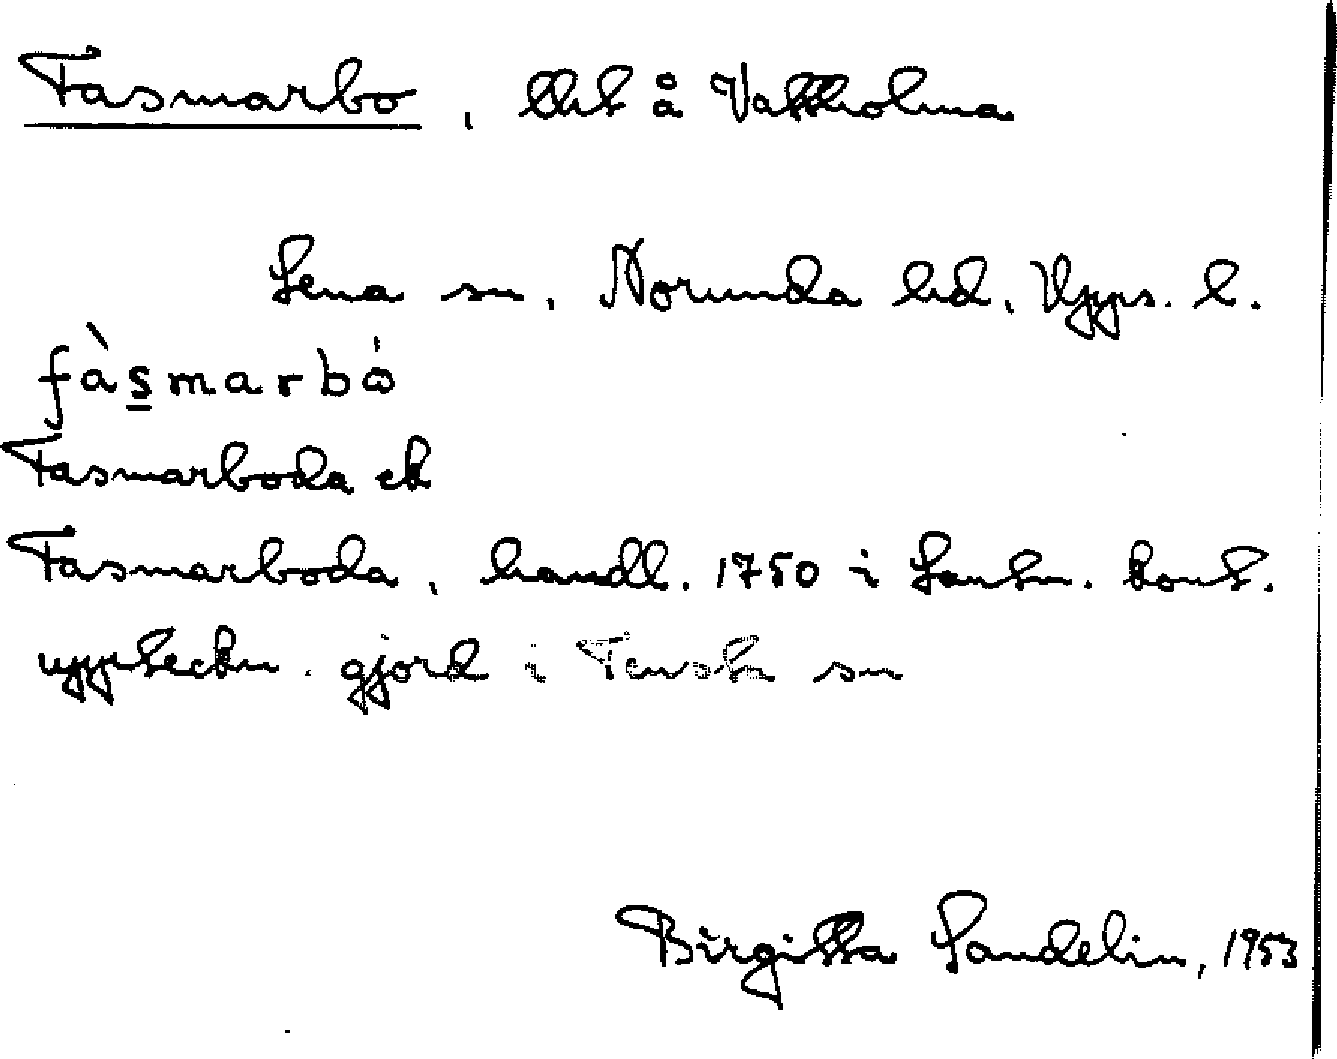 Fasmarbo, å Vattholma
Lena sn, Norunda hd, Upps. l.
fàsmarbó
Fasmarboda ek
Fasmarboda, handl. 1750 i Lantm. kont.
uppteckn. gjord i Tensta sn
Birgitta Landelin, 1953